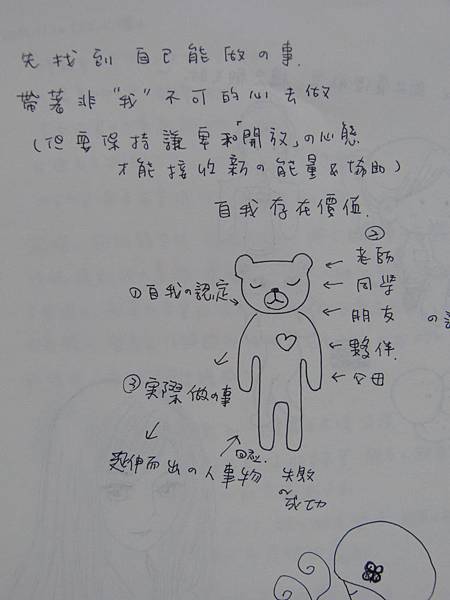 先找到自己能做の事.
帶著非"我"不可的心去做
(但要保持謙卑和「開放」の心態
才能接收新の能量&協助)
自我存在價值.
②
← 老師
← 同學
← 朋友
← 夥伴.
← 父母
①自我の認定
③実際做の事
延伸而出の人事物
回應.
失敗
~
成功
の